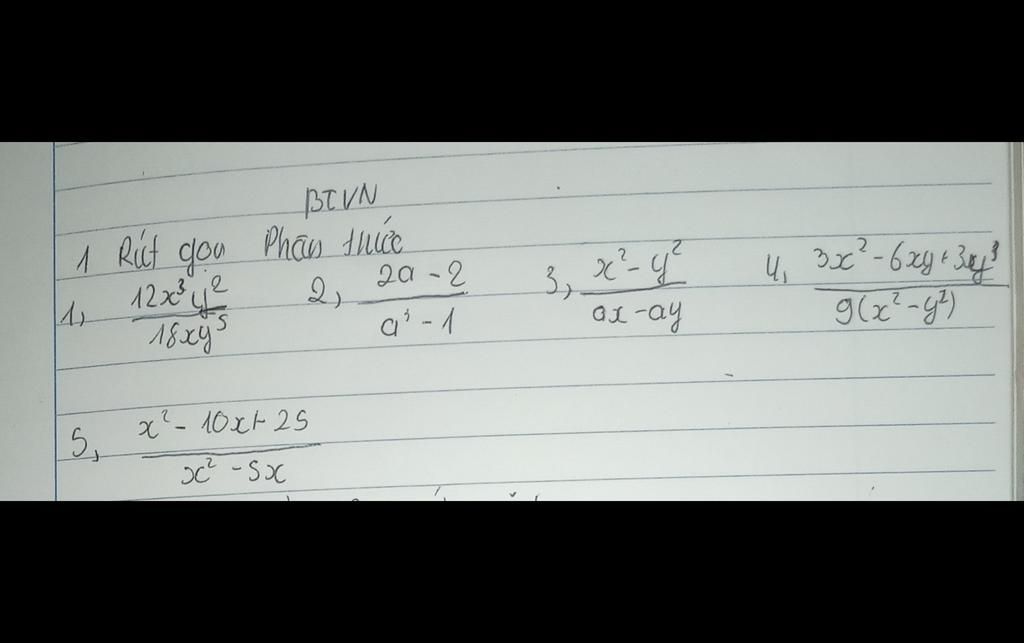 BTVN
1 Rút gọn Phân thức
1, \frac{12x^3y^2}{18xy^5} 2, \frac{2a-2}{a^3-1} 3, \frac{x^2-y^2}{ax-ay} 4, \frac{3x^2-6xy+3y^3}{9(x^2-y^2)}
5, \frac{x^2-10x+25}{x^2-5x}